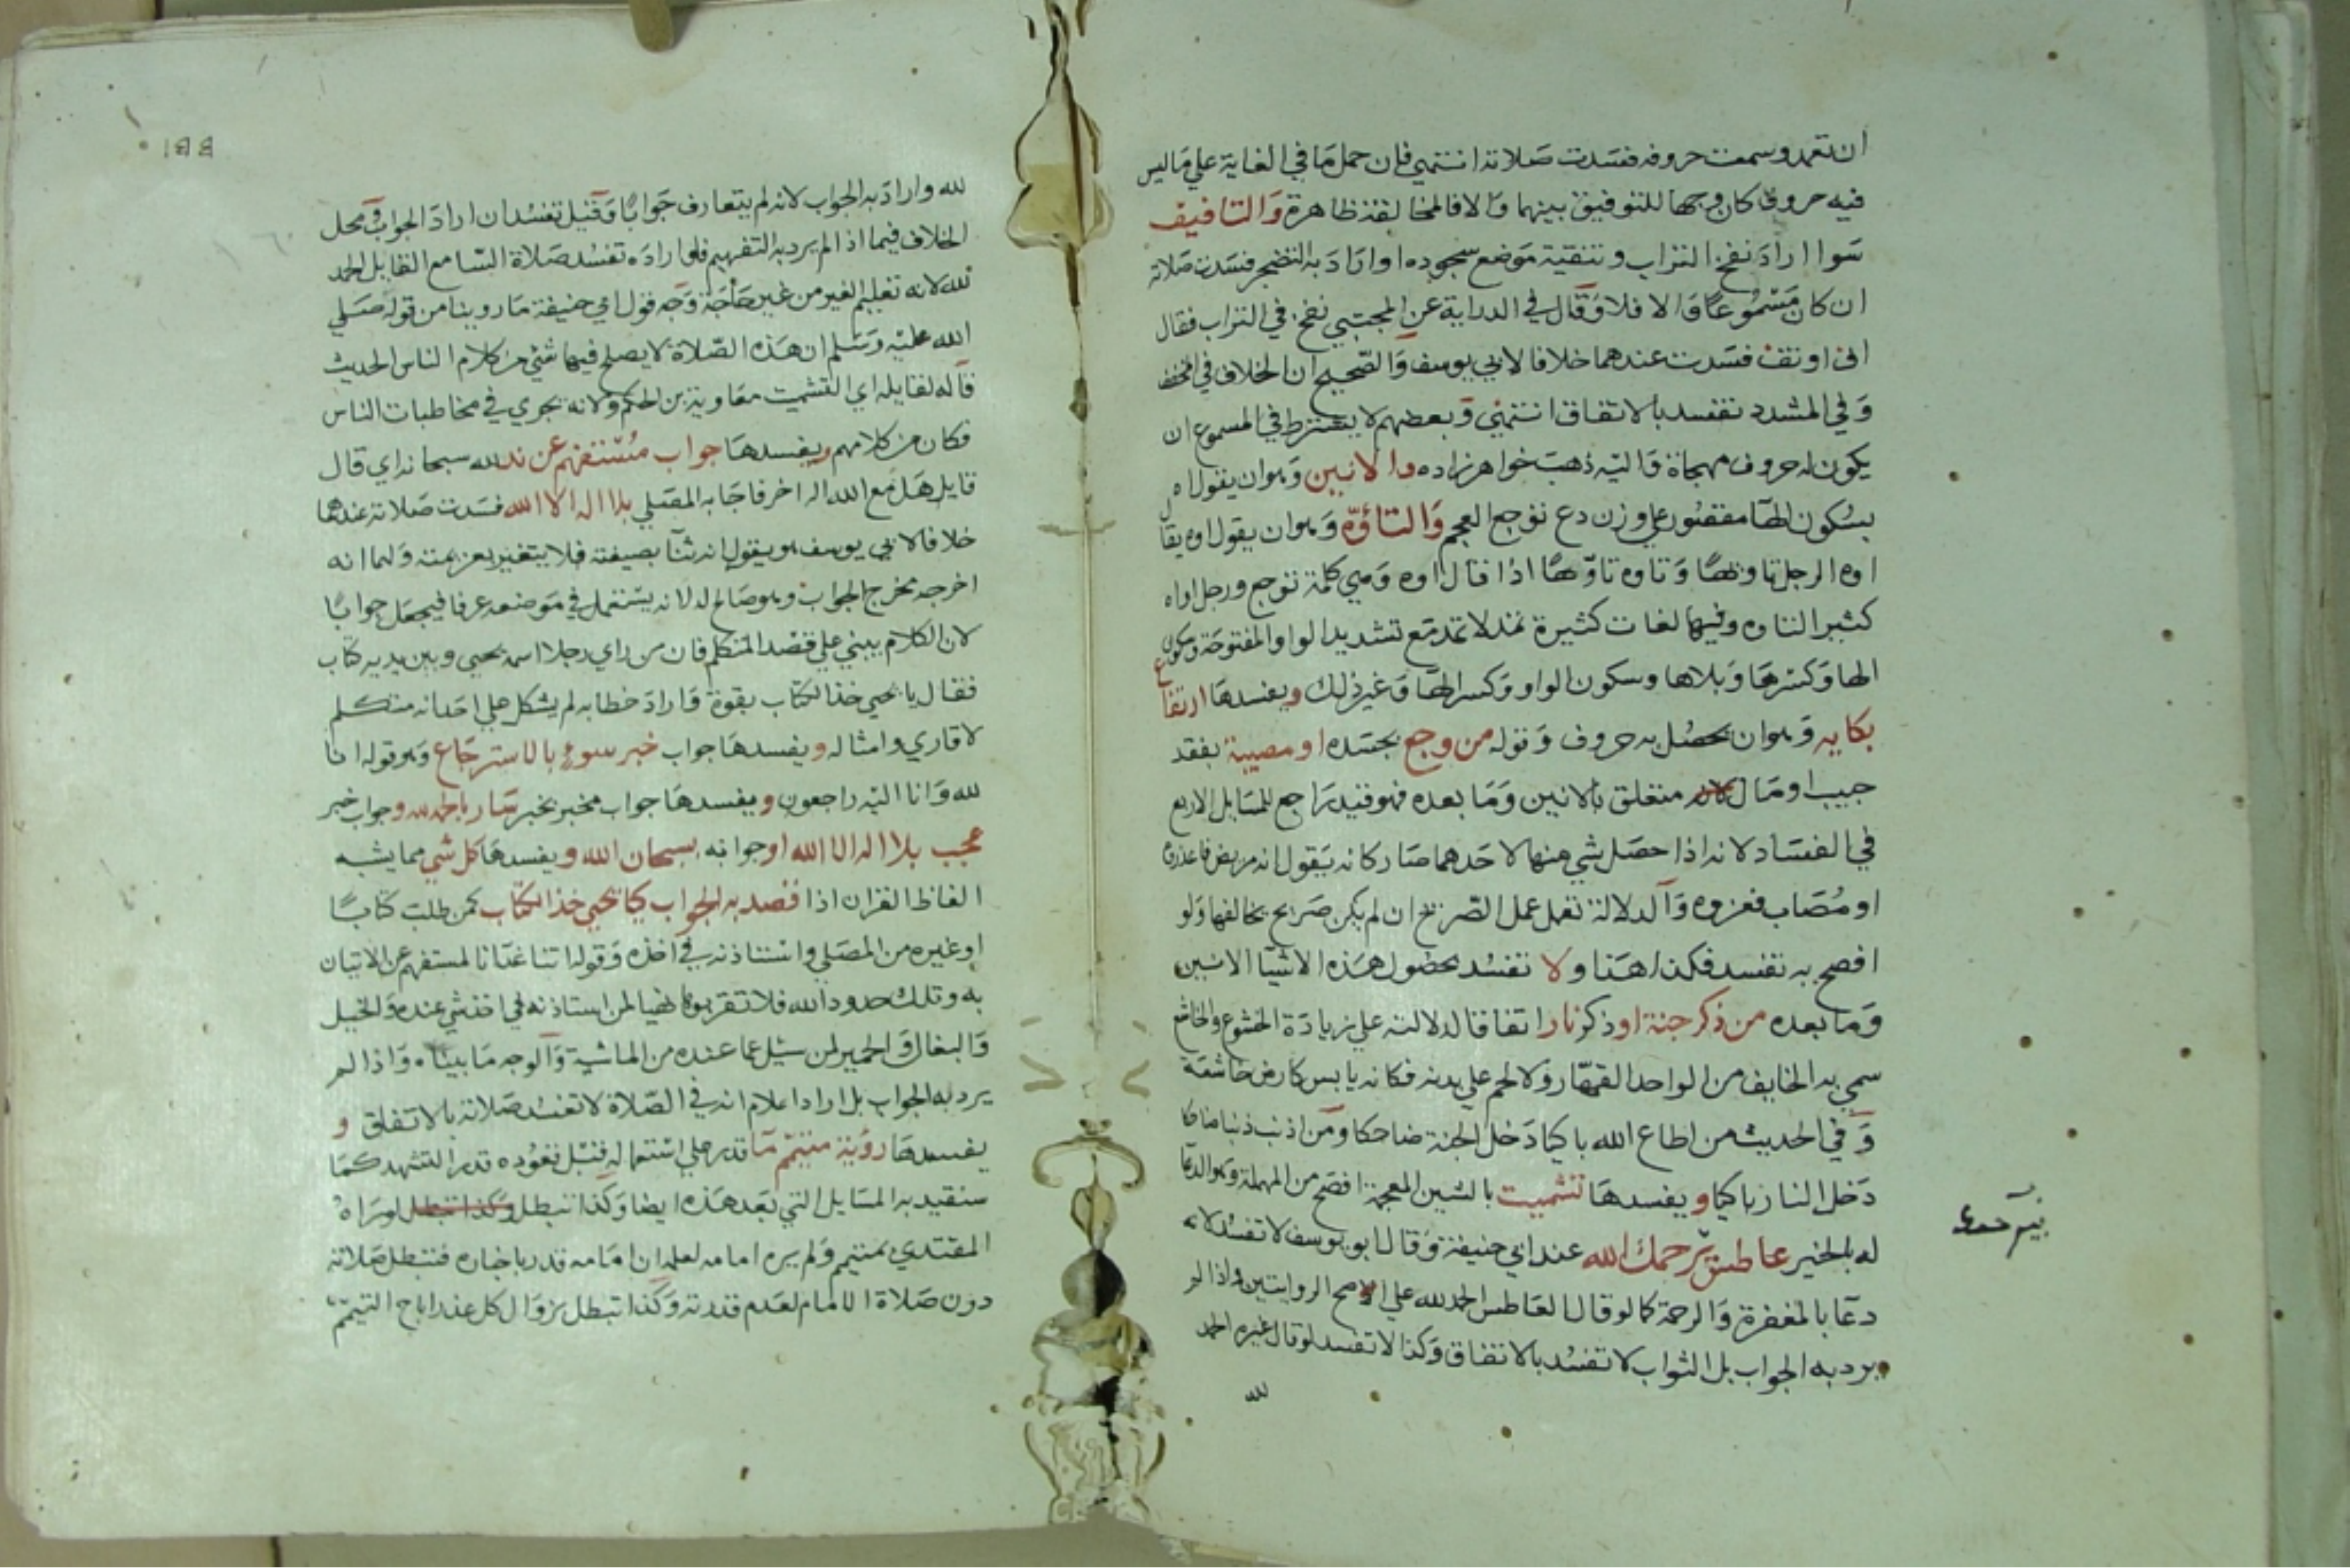 ان تعمد وسمعت حروفه فسدت صلاته انتهي فان حمل ما في الغاية علي ما ليس
فيه حروف كان وجها للتوفيق بينهما والا فالمخالفة ظاهرة والتافيف
سوا اراد نفخ التراب وتنقية موضع سجوده او اراد به التضجر فسدت صلاته
ان كان مسموعا والا فلا وقال في الدراية عن المجتبي نفخ في التراب فقال
اف او تف فسدت عندهما خلافا لابي يوسف والصحيح ان الخلاف في المخفف
وفي المشدد تفسد بالاتفاق انتهي وبعضهم لا يشترط في المسموع ان
يكون له حروف مهجاة واليه ذهب خواهر زاده والانين وهو ان يقول اه
بسكون الها مقصور علي وزن دع توجع العجم والتاوّه وهو ان يقول اوه يقال
اوه الرجل تاوها وتاوه تاوّها اذا قال اوه وهي كلمة توجع ورجل اواه
كثير التاوه وفيها لغات كثيرة تمد لا تمد مع تشديد الواو المفتوحة وسكون
الها وكسرها وبلاها وسكون الواو وكسر الها وغير ذلك ويفسدها ارتفاع
بكايه وهوان يحصل به حروف وقوله من وجع بجسده او مصيبة بفقد
حبيب او مال متعلق بالانين وما بعده فهو قيد راجع للمسايل الاربع
في الفساد لانه اذا حصل شي منها لاحدهما صار كانه يقول انه مريض فاعذروه
او مصاب فعزوه والدلالة تعمل عمل الصريح ان لم يكن صريح يخالفها ولو
افصح به تفسد فكذا هنا ولا تفسد بحصول هذه الاشيا الانين
وما بعده من ذكر جنة او ذكر نار اتفاقا لدلالته علي زيادة الخشوع والخاشع
سمي به الخايف من الواحد القهار ولا لحم علي بدنه فكانه يابس كارض خاشعة
وفي الحديث من اطاع الله باكيا دخل الجنة ضاحكا ومن اذنب ذنبا ضاحكا
دخل النار باكيا ويفسدها تشميت بالشين المعجمة افصح من المهملة وهو الدعا
له بالخير عاطس يرحمك الله عند ابي حنيفة وقال ابو يوسف لا تفسد لانه
دعا بالمغفرة والرحمة كما لو قال العاطس الحمد لله علي الاصح الروايتين واذا لم
يرد به الجواب بل الثواب لا تفسد بالاتفاق وكذا لا تفسد لو قال غيره الحمد
لله
لله واراد به الجواب لانه لم يتعارف جوابا وقيل تفسد ان اراد الجواب ومحل
الخلاف فيما اذا لم يرد به التفهيم فلو اراده تفسد صلاة السامع القايل الحمد
لله لانه تعليم الغير من غير حاجة وجه قول ابي حنيفة ما روينا من قوله صلي
الله عليه وسلم ان هذه الصلاة لا يصلح فيها شي من كلام الناس الحديث
قاله لقايله اي التشميت معاوية بن الحكم ولانه يجري في مخاطبات الناس
فكان من كلامهم ويفسدها جواب مستفهم عن ند لله سبحانه اي قال
قايل هل مع الله اله اخر فاجابه المصلي بلا اله الا الله فسدت صلاته عندهما
خلافا لابي يوسف هو يقول انه ثنا بصيغته فلا يتغير بعزيمته ولهما انه
اخرجه مخرج الجواب وهو صالح له لانه يستعمل في موضعه عرفا فيجعل جوابا
لان الكلام يبني علي قصد المتكلم فان من راي رجلا اسمه يحيي وبين يديه كتاب
فقال يا يحيي خذ الكتاب بقوة واراد خطابه لم يشكل علي احد انه متكلم
لا قاري وامثاله ويفسدها جواب خبر سوء بالاسترجاع وهو قوله انا
لله وانا اليه راجعون ويفسدها جواب مخبر بخبر سار بالحمد لله وجواب خبر
عجب بلا اله الا الله او جوابه بسبحان الله ويفسدها كل شي مما يشبه
الفاظ القران اذا قصد به الجواب كيا يحيي خذ الكتاب كمن طلب كتابا
او غيره من المصلي واستاذنه في اخذه وقوله اتنا غدانا لمستفهم عن الاتيان
به وتلك حدود الله فلا تقربوها نهيا لمن استاذنه في اخذ شي عنده والخيل
والبغال والحمير لمن سئل عما عنده من الماشية والوجه ما بيناه واذا لم
يرد به الجواب بل اراد اعلام انه في الصلاة لا تفسد صلاته بالاتفاق و
يفسدها روية متيمم ما قدر علي استعماله قبل قعوده قدر التشهد كما
سنقيد به المسايل التي بعد هذه ايضا وكذا تبطل وكذا تبطل لو راه
المقتدي بمتيمم ولم يره امامه لعلمه ان امامه قدر باخباره فتبطل صلاته
دون صلاة الامام لعدم قدرته وكذا تبطل بزوال كل عذر اباح التيمم